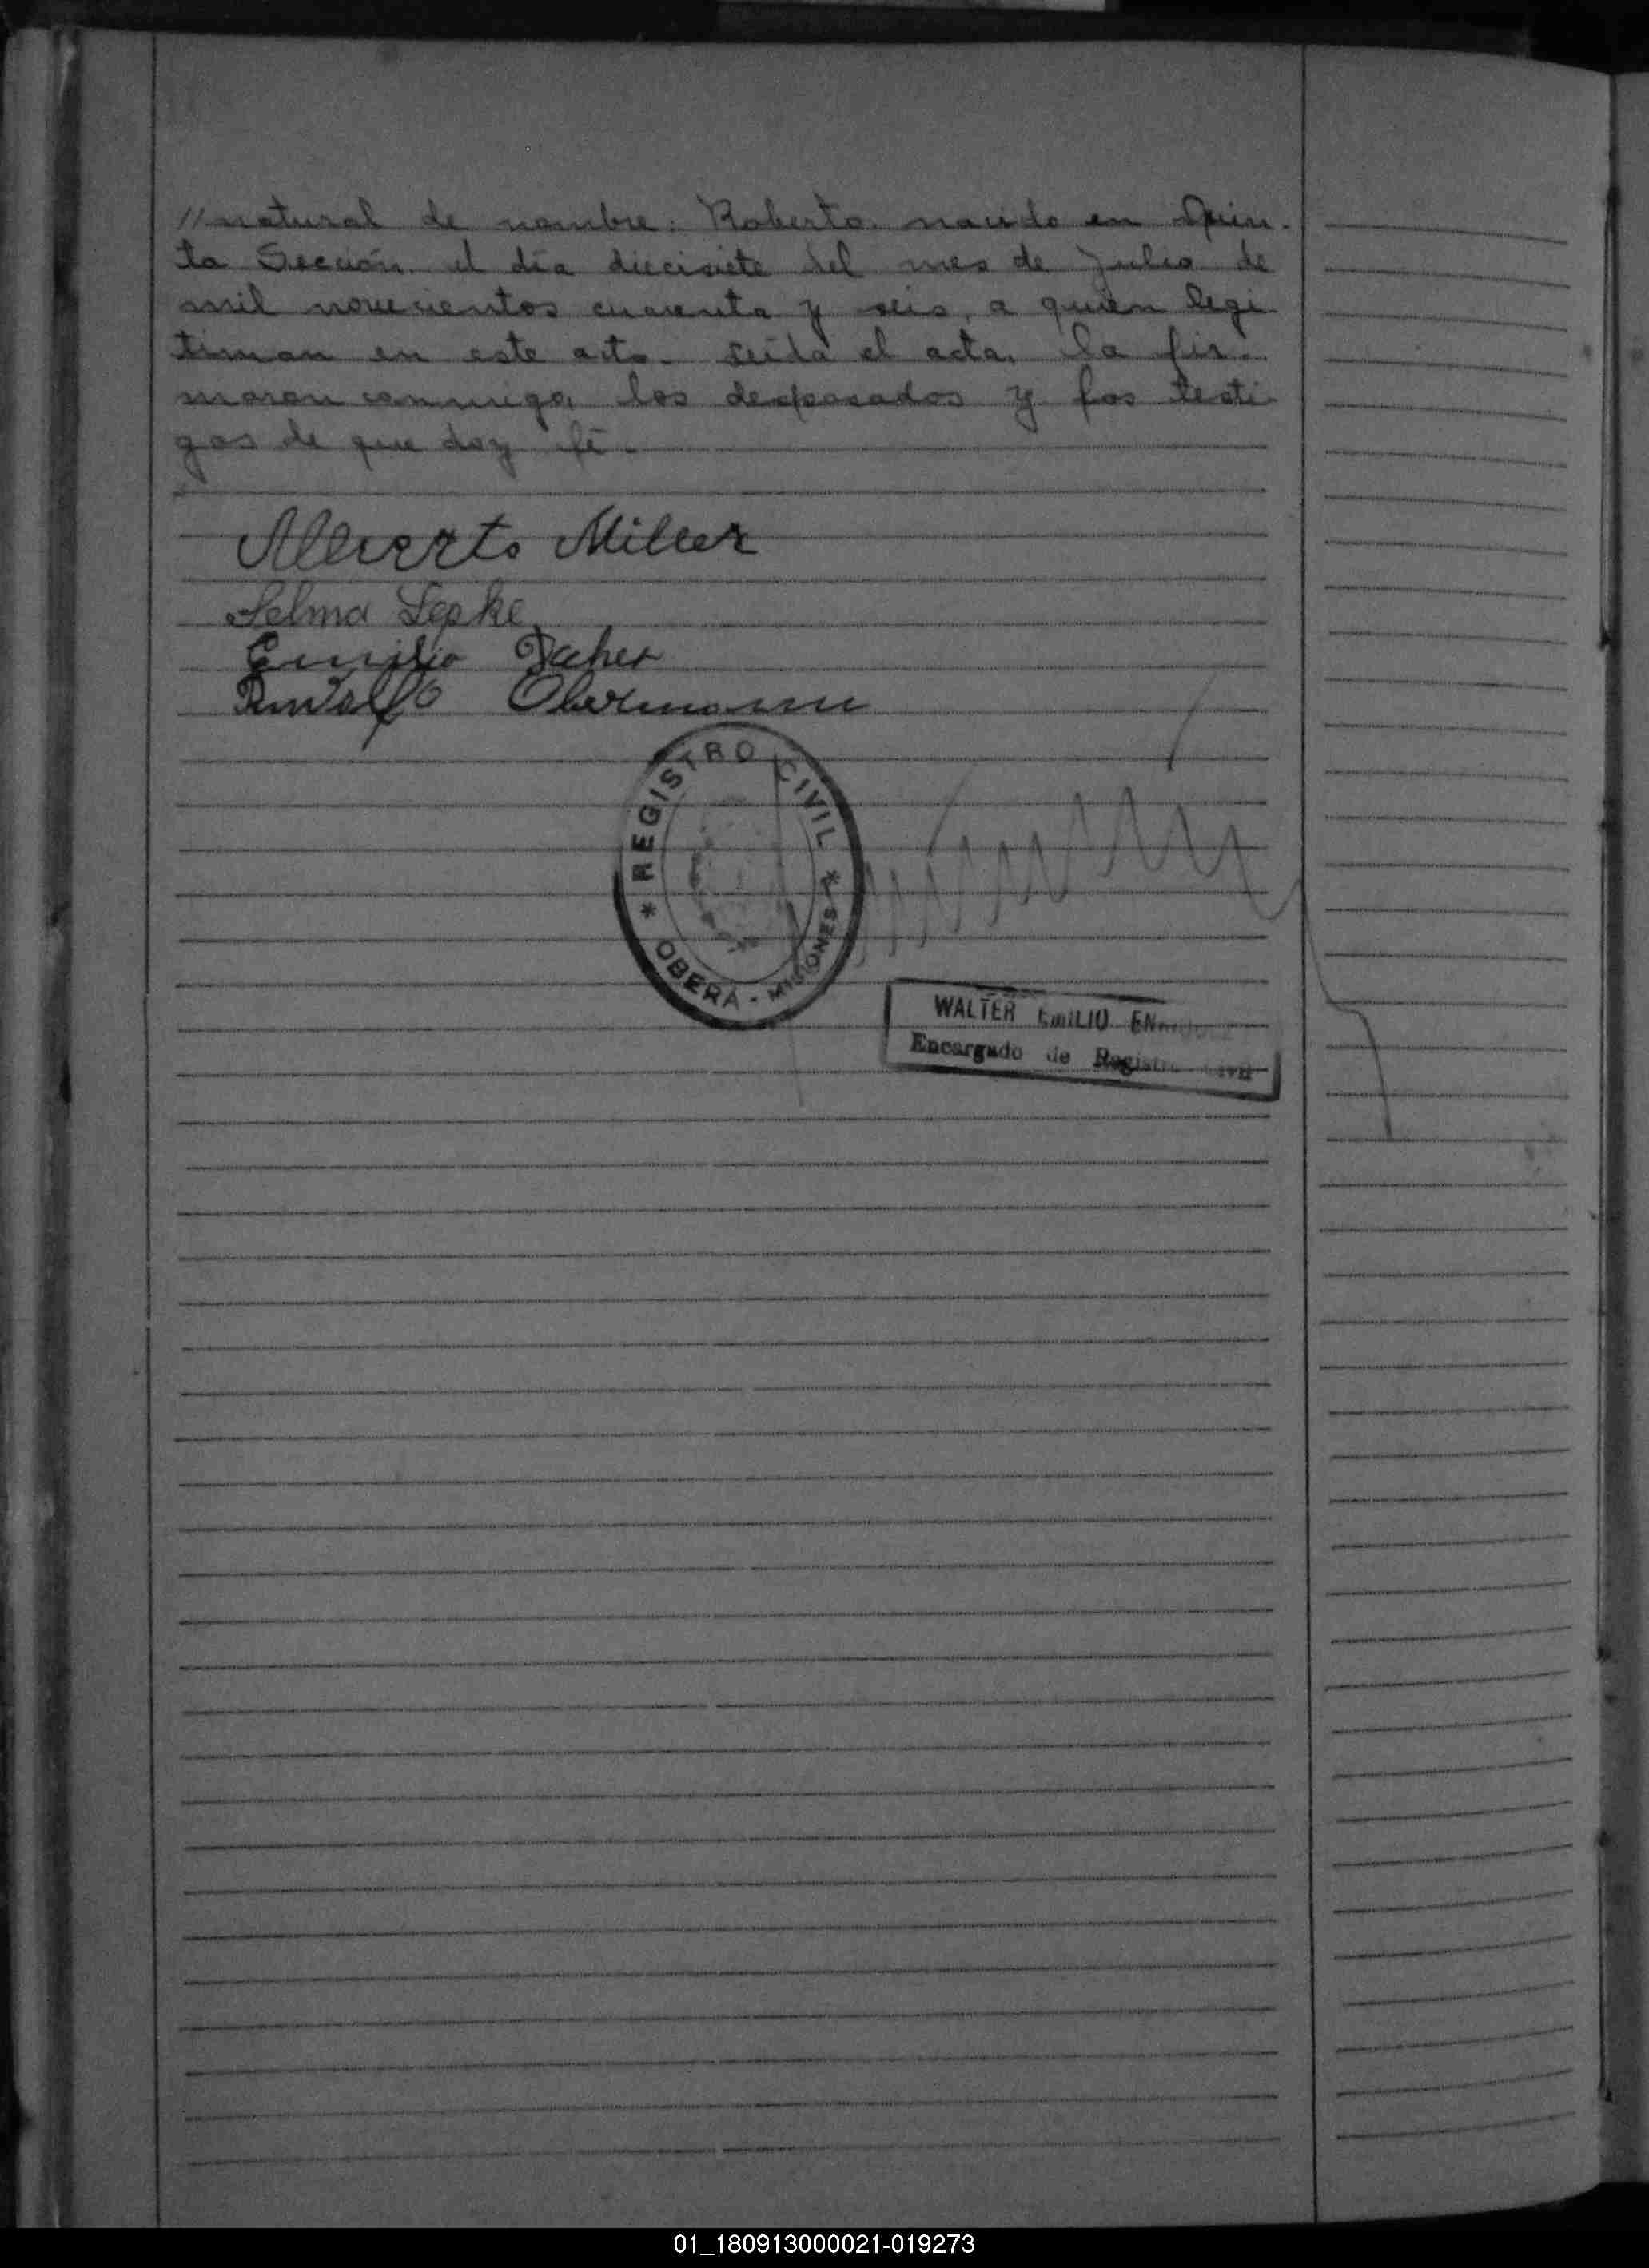 // natural de nombre: Roberto. nacido en Quin-
ta Sección. el día diecisiete del mes de Julio de
mil novecientos cuarenta y seis, a quien legi
timan en este acto. Leída el acta, la fir-
maron conmigo, los desposados y los testi-
gos de que doy fé.
Alberto Miller
Selma Lepke
Emilio
Rodolfo Obermann
* REGISTRO CIVIL *
OBERÁ - MISIONES
WALTER EMILIO
Encargado de Registro Civil
01_180913000021-019273